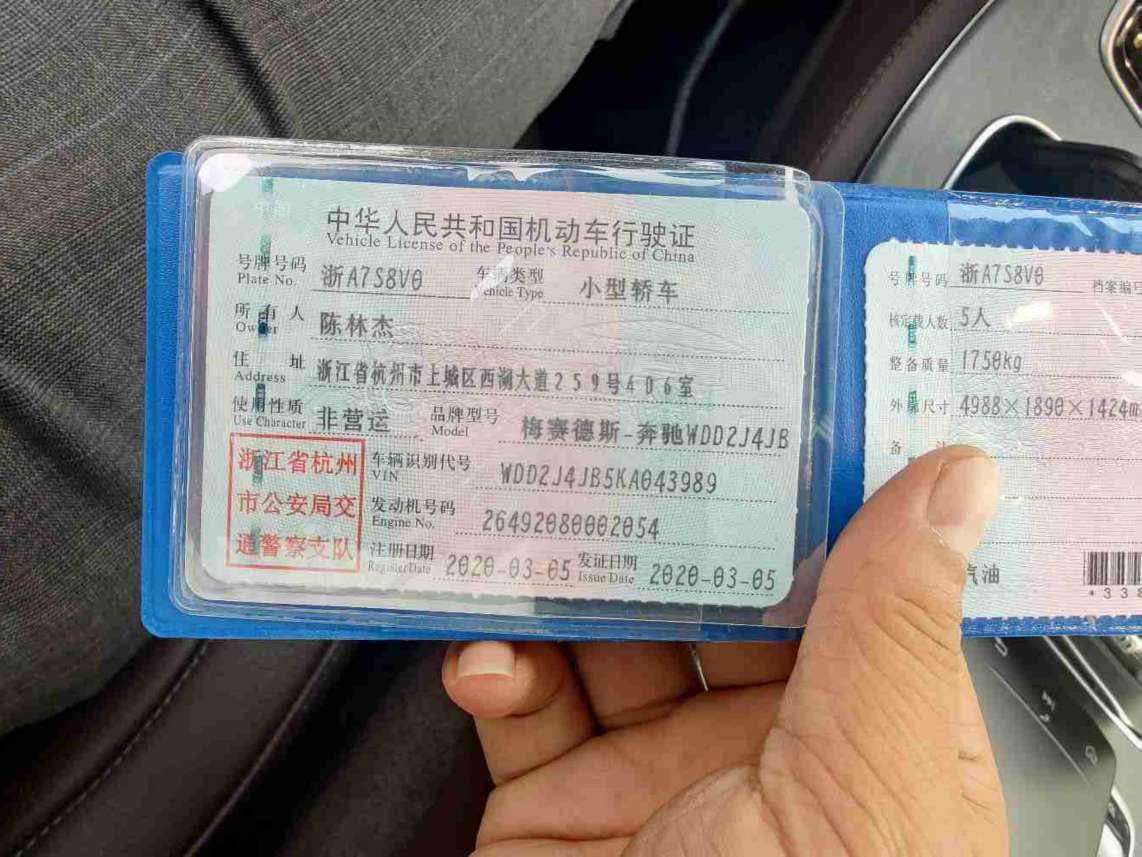 中华人民共和国机动车行驶证
Vehicle License of the People's Republic of China
号牌号码 浙A7S8V0 车辆类型 小型轿车
Plate No. Vehicle Type
所有人 陈林杰
Owner
住址 浙江省杭州市上城区西湖大道259号406室
Address
使用性质 非营运 品牌型号 梅赛德斯-奔驰WDD2J4JB
Use Character Model
浙江省杭州
市公安局交
通警察支队
车辆识别代号 WDD2J4JB5KA043989
VIN
发动机号码 26492080002054
Engine No.
注册日期 2020-03-05 发证日期 2020-03-05
Register Date Issue Date
号牌号码 浙A7S8V0 档案编号
核定载人数 5人
整备质量 1750kg
外廓尺寸 4988×1890×1424m
备注
汽油
*338